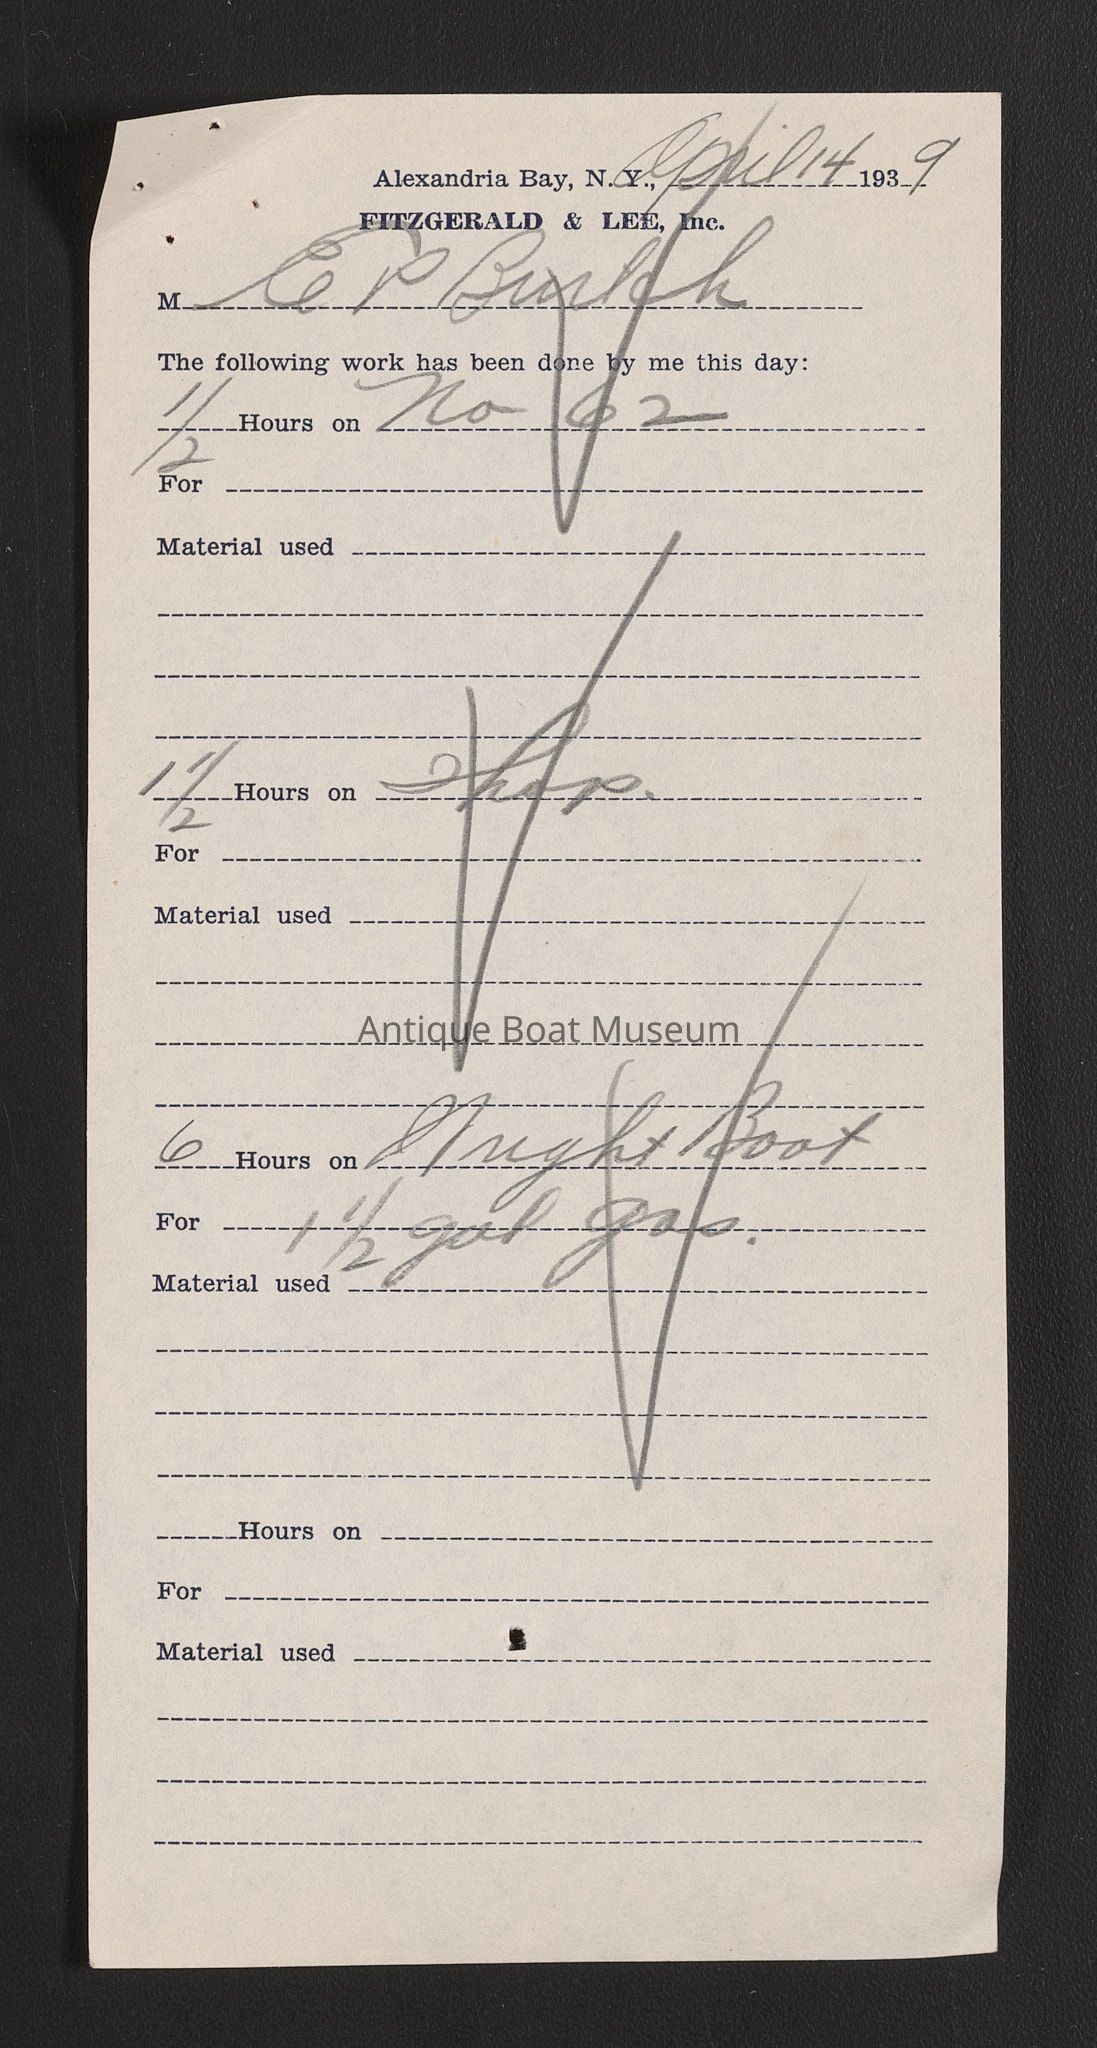 Alexandria Bay, N. Y., April 14 1939
FITZGERALD & LEE, Inc.
M E P Burtch
The following work has been done by me this day:
1/2 Hours on No 62
For
Material used
1 1/2 Hours on Shop.
For
Material used
Antique Boat Museum
6 Hours on Wright Boat
For 1 1/2 gal gas.
Material used
Hours on
For
Material used